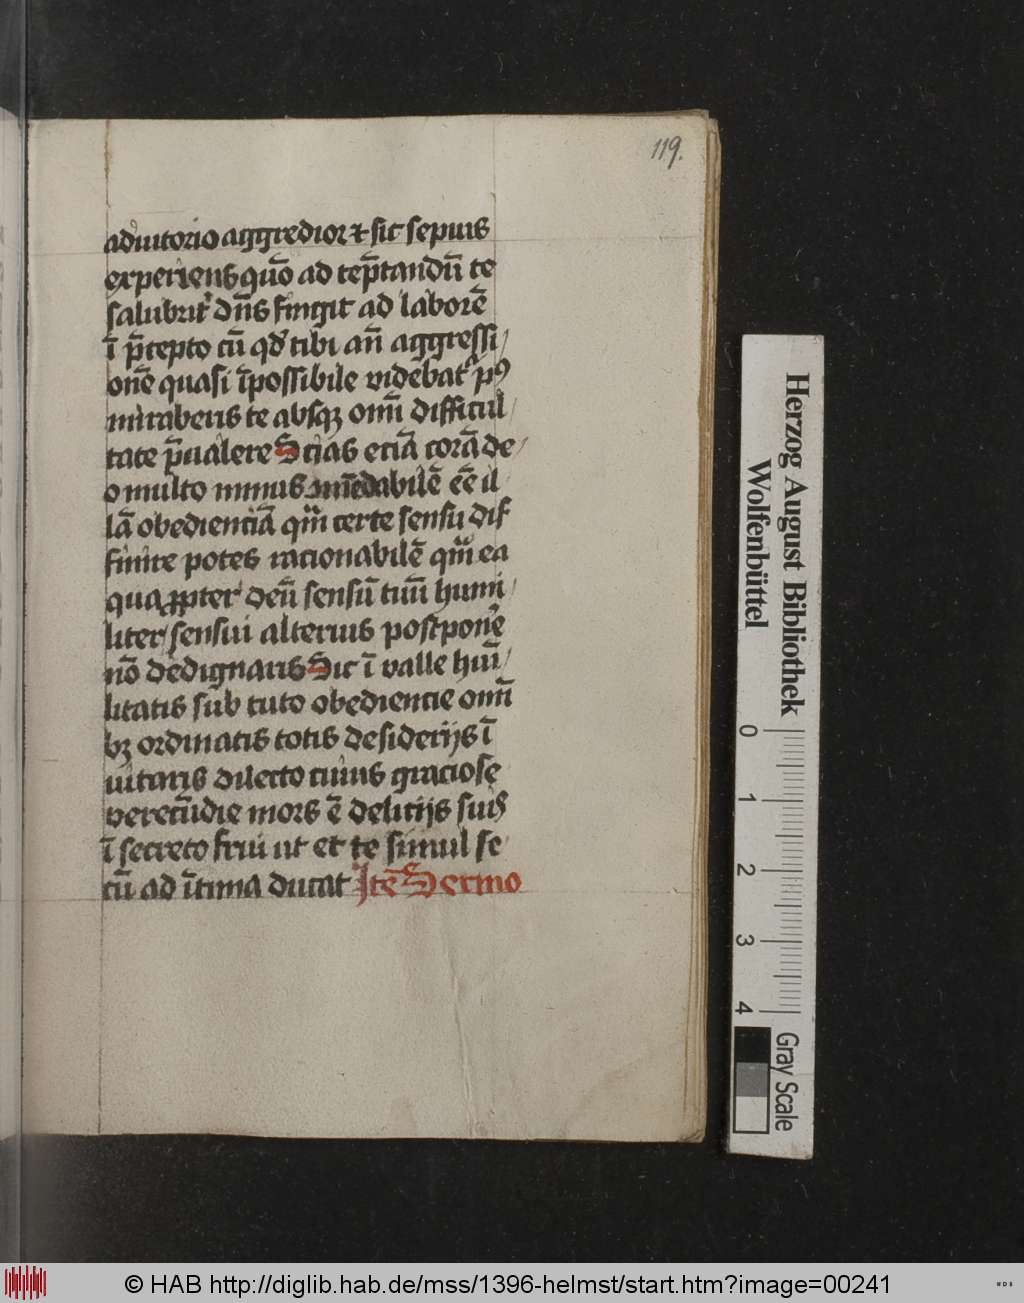 119.
adiutorio aggredior ⁊ sic sepius
experiens quō ad tēptandū te
salubrit dn̄s fingit ad laborē
ī p̄cepto cū qd tibi an̄ aggressi
onē quasi īpossibile videbat pꝰ
miraberis te absqꝫ om̄i difficul
tate p̄ualere Scias eciā corā de
o multo minus ēē il
lā obedienciā qm̄ certe sensu dif
finire potes racionabilē qm̄ ea
quaꝓpter den̄ sensū tuū humi
liter sensui alterius postponē
nō dedignaris Sic ī valle hūi
litatis sub tuto obediencie om̄i
bꝫ ordinatis totis desiderijs ī
uitaris dilecto cuius graciose
verecūdie mors ē delicijs suis
ī secreto frui ut et te simul se
cū ad ītima ducat Itē Sermo
Herzog August Bibliothek
Wolfenbüttel
0 1 2 3 4
Gray Scale
© HAB http://diglib.hab.de/mss/1396-helmst/start.htm?image=00241